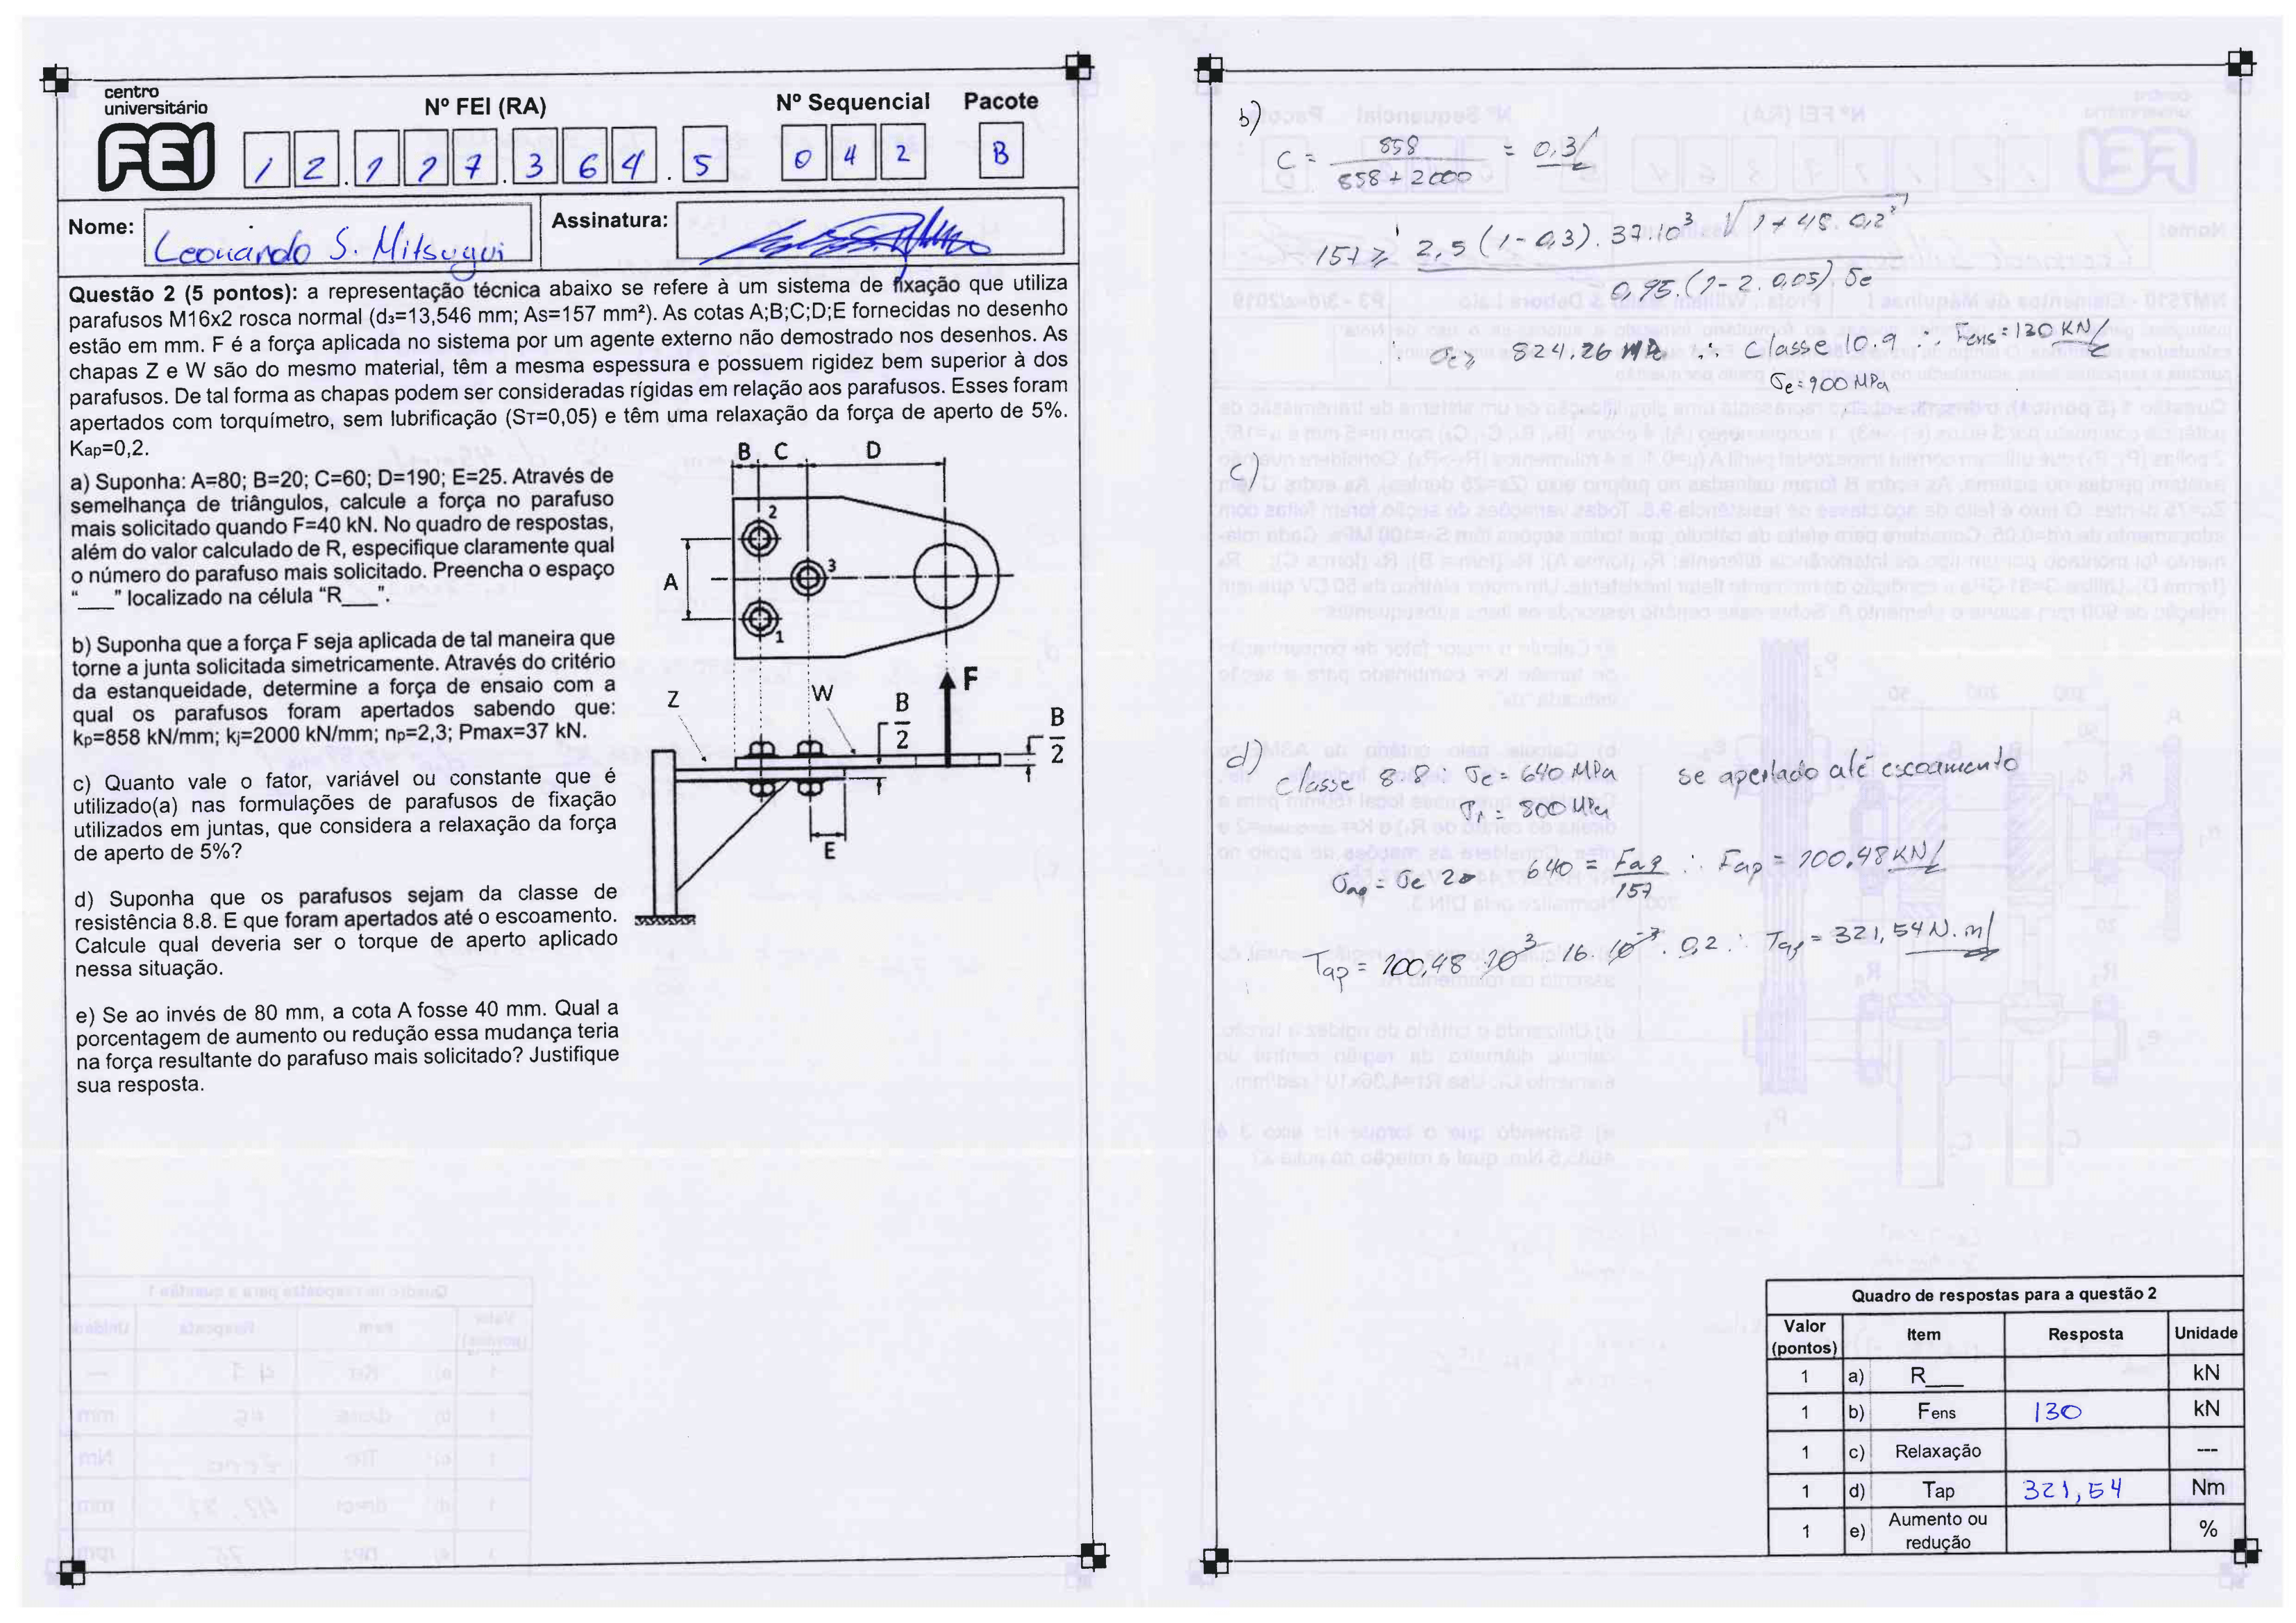 centro
universitário
FEI
Nº FEI (RA)
Nº Sequencial
Pacote
1 2 . 1 2 7 . 3 6 4 . 5
0 4 2
B
Nome: Leonardo S. Mitsugui
Assinatura:
Questão 2 (5 pontos): a representação técnica abaixo se refere à um sistema de fixação que utiliza
parafusos M16x2 rosca normal (d₃=13,546 mm; As=157 mm²). As cotas A;B;C;D;E fornecidas no desenho
estão em mm. F é a força aplicada no sistema por um agente externo não demostrado nos desenhos. As
chapas Z e W são do mesmo material, têm a mesma espessura e possuem rigidez bem superior à dos
parafusos. De tal forma as chapas podem ser consideradas rígidas em relação aos parafusos. Esses foram
apertados com torquímetro, sem lubrificação (ST=0,05) e têm uma relaxação da força de aperto de 5%.
Kap=0,2.
a) Suponha: A=80; B=20; C=60; D=190; E=25. Através de
semelhança de triângulos, calcule a força no parafuso
mais solicitado quando F=40 kN. No quadro de respostas,
além do valor calculado de R, especifique claramente qual
o número do parafuso mais solicitado. Preencha o espaço
"___" localizado na célula "R___".
b) Suponha que a força F seja aplicada de tal maneira que
torne a junta solicitada simetricamente. Através do critério
da estanqueidade, determine a força de ensaio com a
qual os parafusos foram apertados sabendo que:
kp=858 kN/mm; kj=2000 kN/mm; np=2,3; Pmax=37 kN.
c) Quanto vale o fator, variável ou constante que é
utilizado(a) nas formulações de parafusos de fixação
utilizados em juntas, que considera a relaxação da força
de aperto de 5%?
d) Suponha que os parafusos sejam da classe de
resistência 8.8. E que foram apertados até o escoamento.
Calcule qual deveria ser o torque de aperto aplicado
nessa situação.
e) Se ao invés de 80 mm, a cota A fosse 40 mm. Qual a
porcentagem de aumento ou redução essa mudança teria
na força resultante do parafuso mais solicitado? Justifique
sua resposta.
B C D
2
3
A
1
Z
W
B/2
F
B/2
E
b)
C = 858 / (858 + 2000) = 0,3
157 ≥ 2,5 (1 - 0,3) . 37.10³ √(1 + 48 . 0,2²) / 0,95 . (1 - 2 . 0,05) . σe
σe ≥ 824.26 MPa ∴ Classe 10.9 ∴ Fens = 130 KN
σe = 900 MPa
c)
d)
Classe 8.8 : σe = 640 MPa se apertado até escoamento
σr = 800 MPa
640 = Fap / 157 ∴ Fap = 100.48 KN
Tap = 100,48 . 10³ . 16 . 10⁻³ . 0,2 ∴ Tap = 321,54 N.m
Quadro de respostas para a questão 2
Valor (pontos) Item Resposta Unidade
1 a) R___ kN
1 b) Fens 130 kN
1 c) Relaxação ---
1 d) Tap 321,54 Nm
1 e) Aumento ou redução %